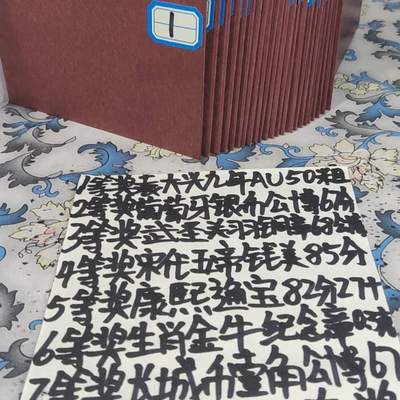 1
1等奖袁大头九年AU50粗
2等奖葡萄牙银币公博61分
3等奖武圣关羽铜章68
4等奖宋代五帝钱美85分
5等奖康熙通宝82分27
6等奖生肖金牛纪念章
7等奖长城币壹角公博67